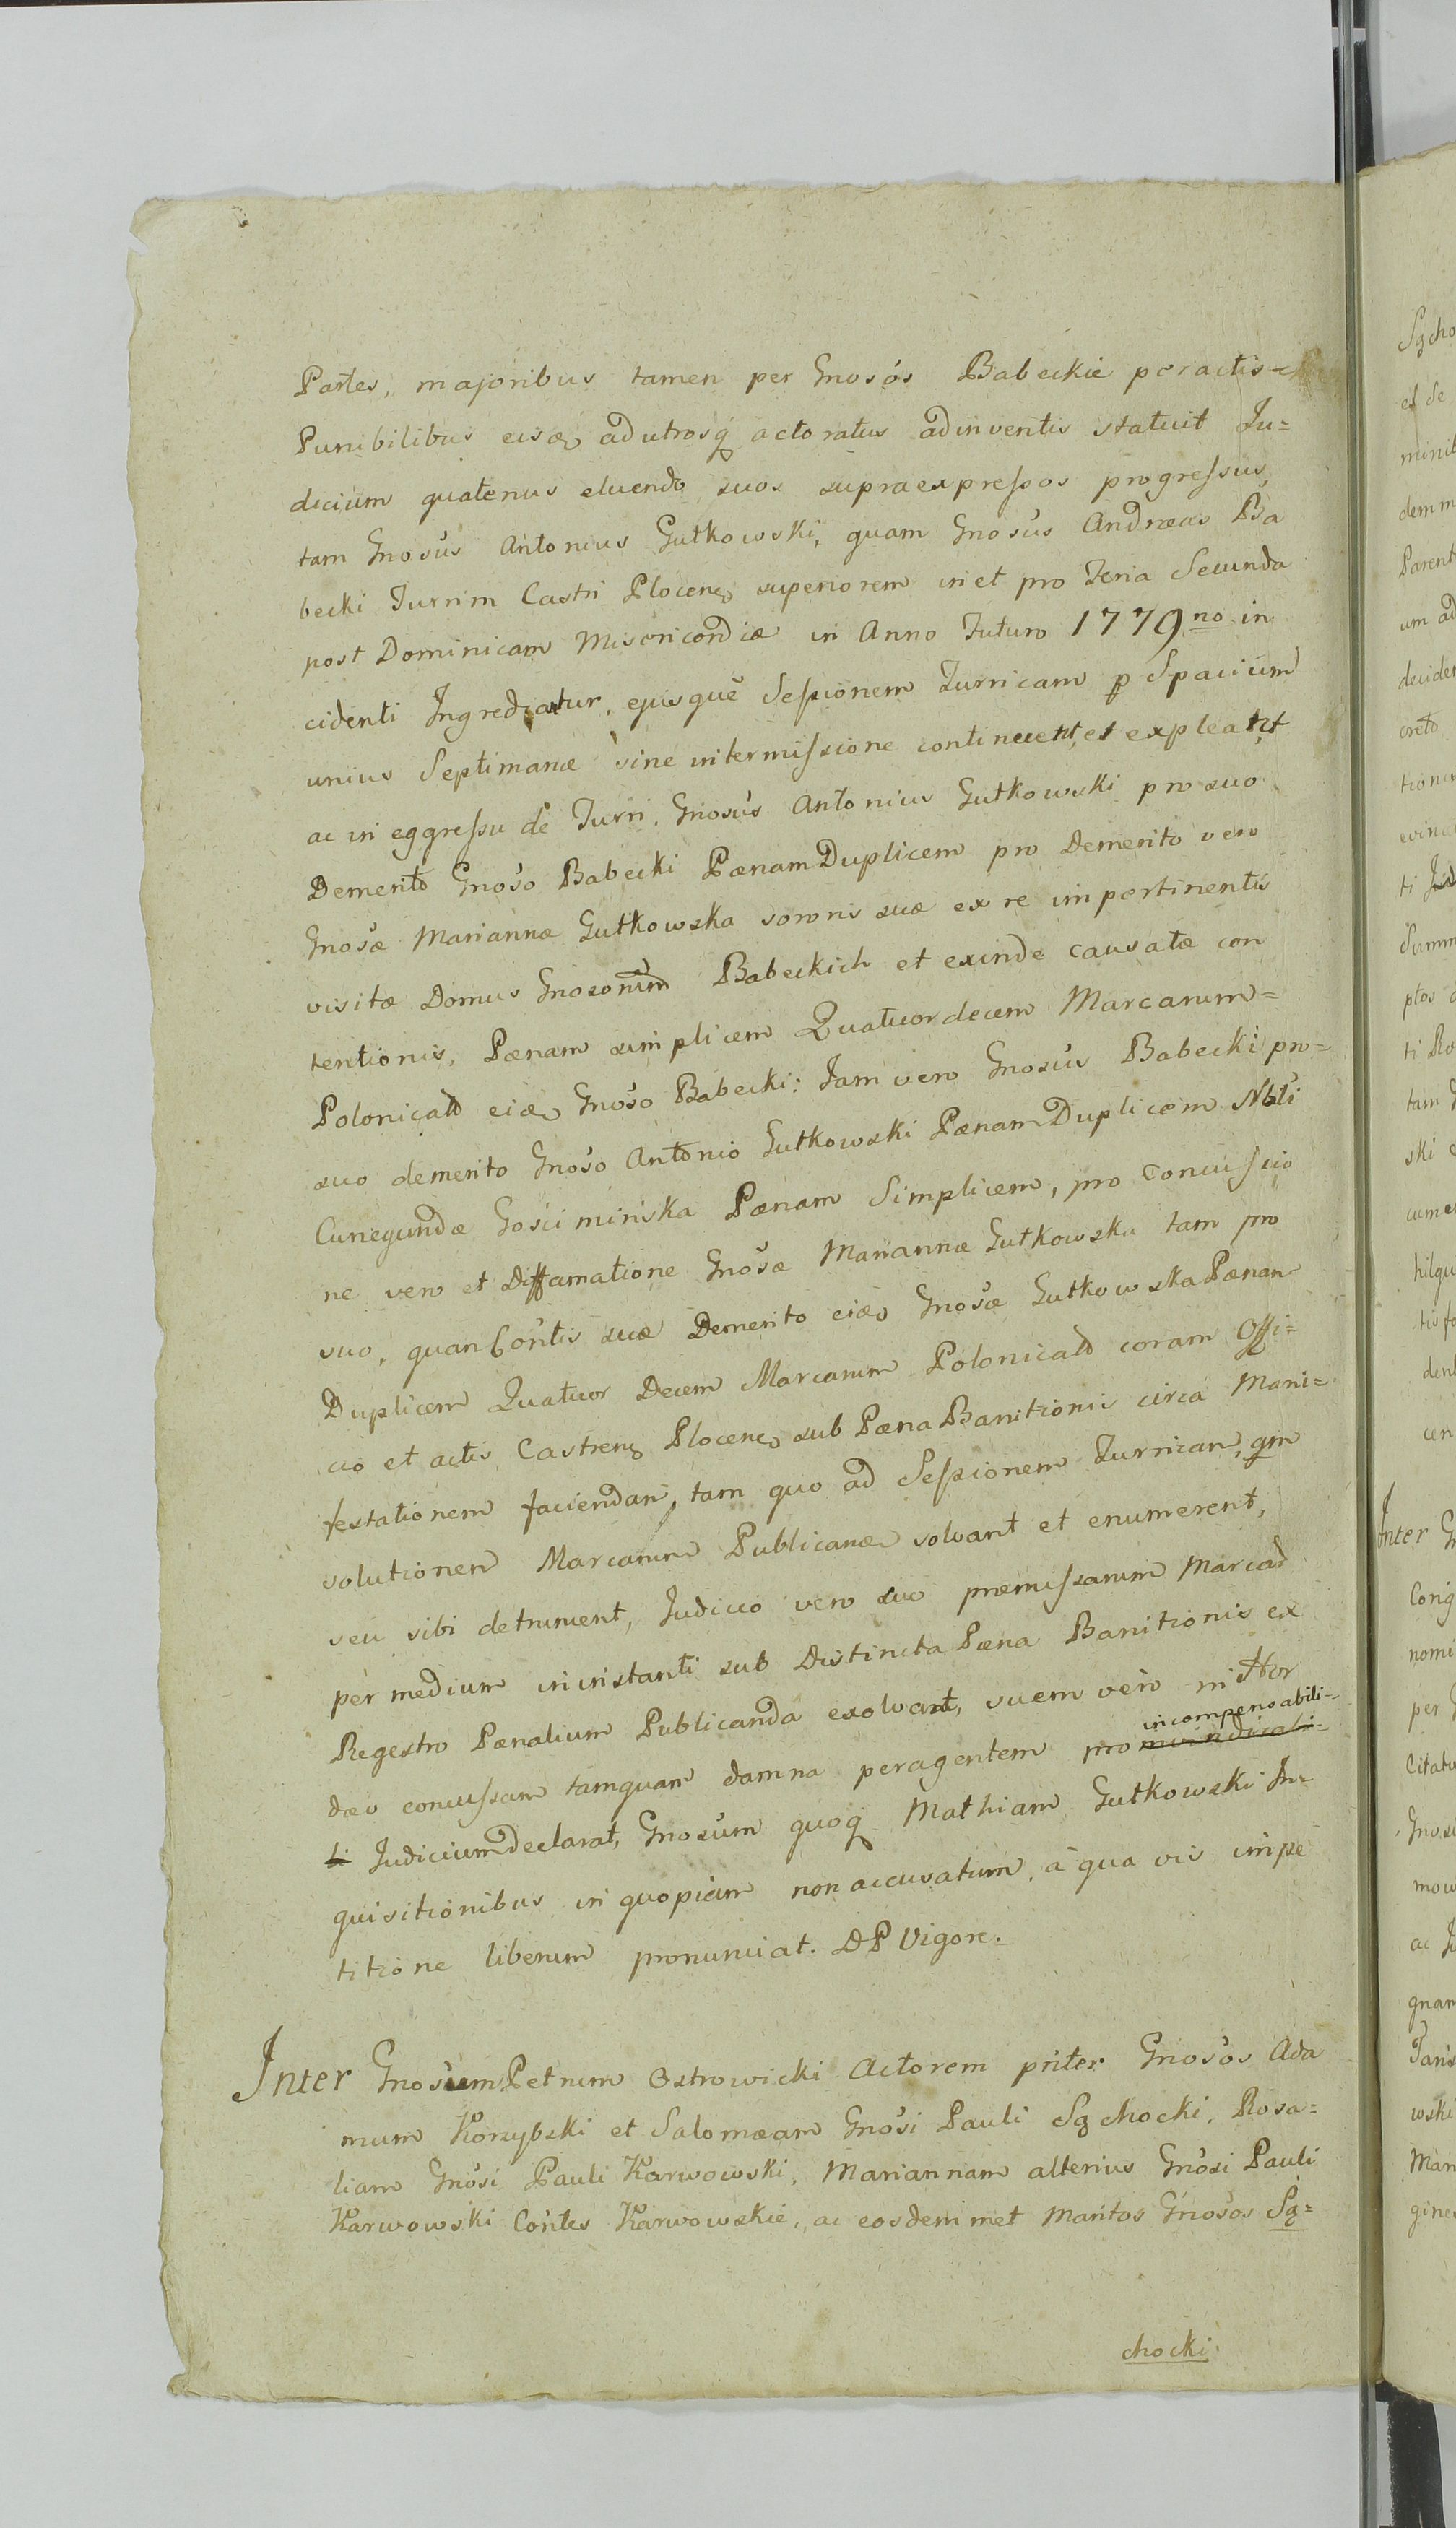 Partes, majoribus tamen per Gnosos Babeckie peractis
Punibilibus eisq adutrosq actoratus adinventis statuit Ju=
dicium quatenus eluendo suos supraexpressos progressus,
tam Gnosus Antonius Gutkowski, quam Gnosus Andreas Ba
becki Turrim Castri Plocens superiorem in et pro Feria Secunda
post Dominicam Misericordiæ in Anno Futuro 1779no in
cidenti Ingrediatur, ejusque Sessionem Turricam p Spacium
unius Septimanæ sine intermissione continuent, et expleant
ac in eggressu de Turri, Gnosus Antonius Gutkowski pro suo
Demerito Gnoso Babecki Pænam Duplicem pro Demerito vero
Gnosæ Mariannæ Gutkowska sororis suæ ex re impertinentis
visitæ Domus Gnosorum Babeckich et exinde causatæ con
tentionis, Pænam simplicem Quatuordecem Marcarum=
Polonicald eid Gnoso Babecki: Jam vero Gnosus Babecki pro=
suo demerito Gnoso Antonio Gutkowski Pænam Duplicem Nbli
Cunegundæ Gosciminska Pænam Simplicem, pro Concussio
ne vero et Diffamatione Gnosæ Mariannæ Gutkowska tam pro
suo, quan Contis suæ Demerito eid Gnosæ Gutkowska Pænan
Duplicem Quatuor Decem Marcarum Polonicald coram Offi=
cio et actis Castrens Plocens sub Pæna Banitionis circa Mani=
festationem faciendam, tam quo ad Sessionem Turrican, qm
solutionem Marcarum Publicanda solvant et enumerent,
seu sibi detrument, Judicio vero suo præmissarum Marcar
per medium in instanti sub Distincta Pæna Banitionis ex
Regestro Pænalium Publicanda exolvant, suem vero
dæo concussam tamquam damna peragentem pro incompensabili=
Judicium declarat, Gnosum quoq Mathiam Gutkowski In=
quisitionibus in quopiam non accusatum, a qua vis impe
titione liberum pronunciat. DP Vigore.
Inter Gnosum Petrum Ostrowicki Actorem priter Gnosos Ada
mum Korzybski et Salomæam Gnosi Pauli Sąchocki, Rosa=
liam Gnosi Pauli Karwowski, Mariannam alterius Gnosi Pauli
Karwowski Contes Karwowskie, ac eosdemmet Maritos Gnosos Są=
chocki